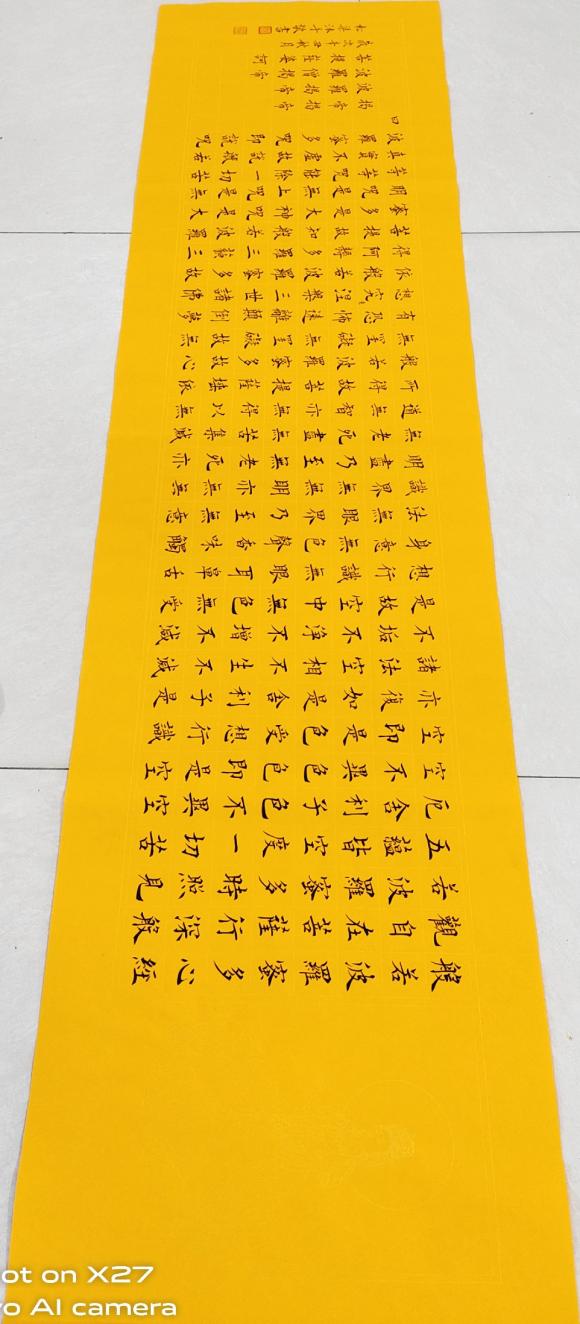 般若波羅蜜多心經
觀自在菩薩行深般
若波羅蜜多時照見
五蘊皆空度一切苦
厄舍利子色不異空
空不異色色即是空
空即是色受想行識
亦復如是舍利子是
諸法空相不生不滅
不垢不淨不增不減
是故空中無色無受
想行識無眼耳鼻舌
身意無色聲香味觸
法無眼界乃至無意
識界無無明亦無無
明盡乃至無老死亦
無老死盡無苦集滅
道無智亦無得以無
所得故菩提薩埵依
般若波羅蜜多故心
無罣礙無罣礙故無
有恐怖遠離顛倒夢
想究涅槃三世諸佛
依般若波羅蜜多故
得阿耨多羅三藐三
菩提故知般若波羅
蜜多是大神咒是大
明咒是無上咒是無
等等咒能除一切苦
真實不虛故說般若
波羅蜜多咒即說咒
曰
揭帝揭帝
波羅揭帝
波羅僧揭帝
菩提薩婆訶
歲次辛丑秋月
敬書
ot on X27
o AI camera